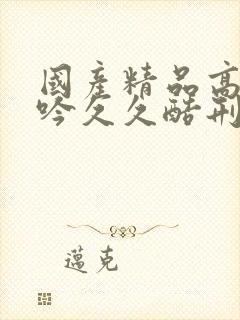 國產精品高
吟久久酷刑
邁克